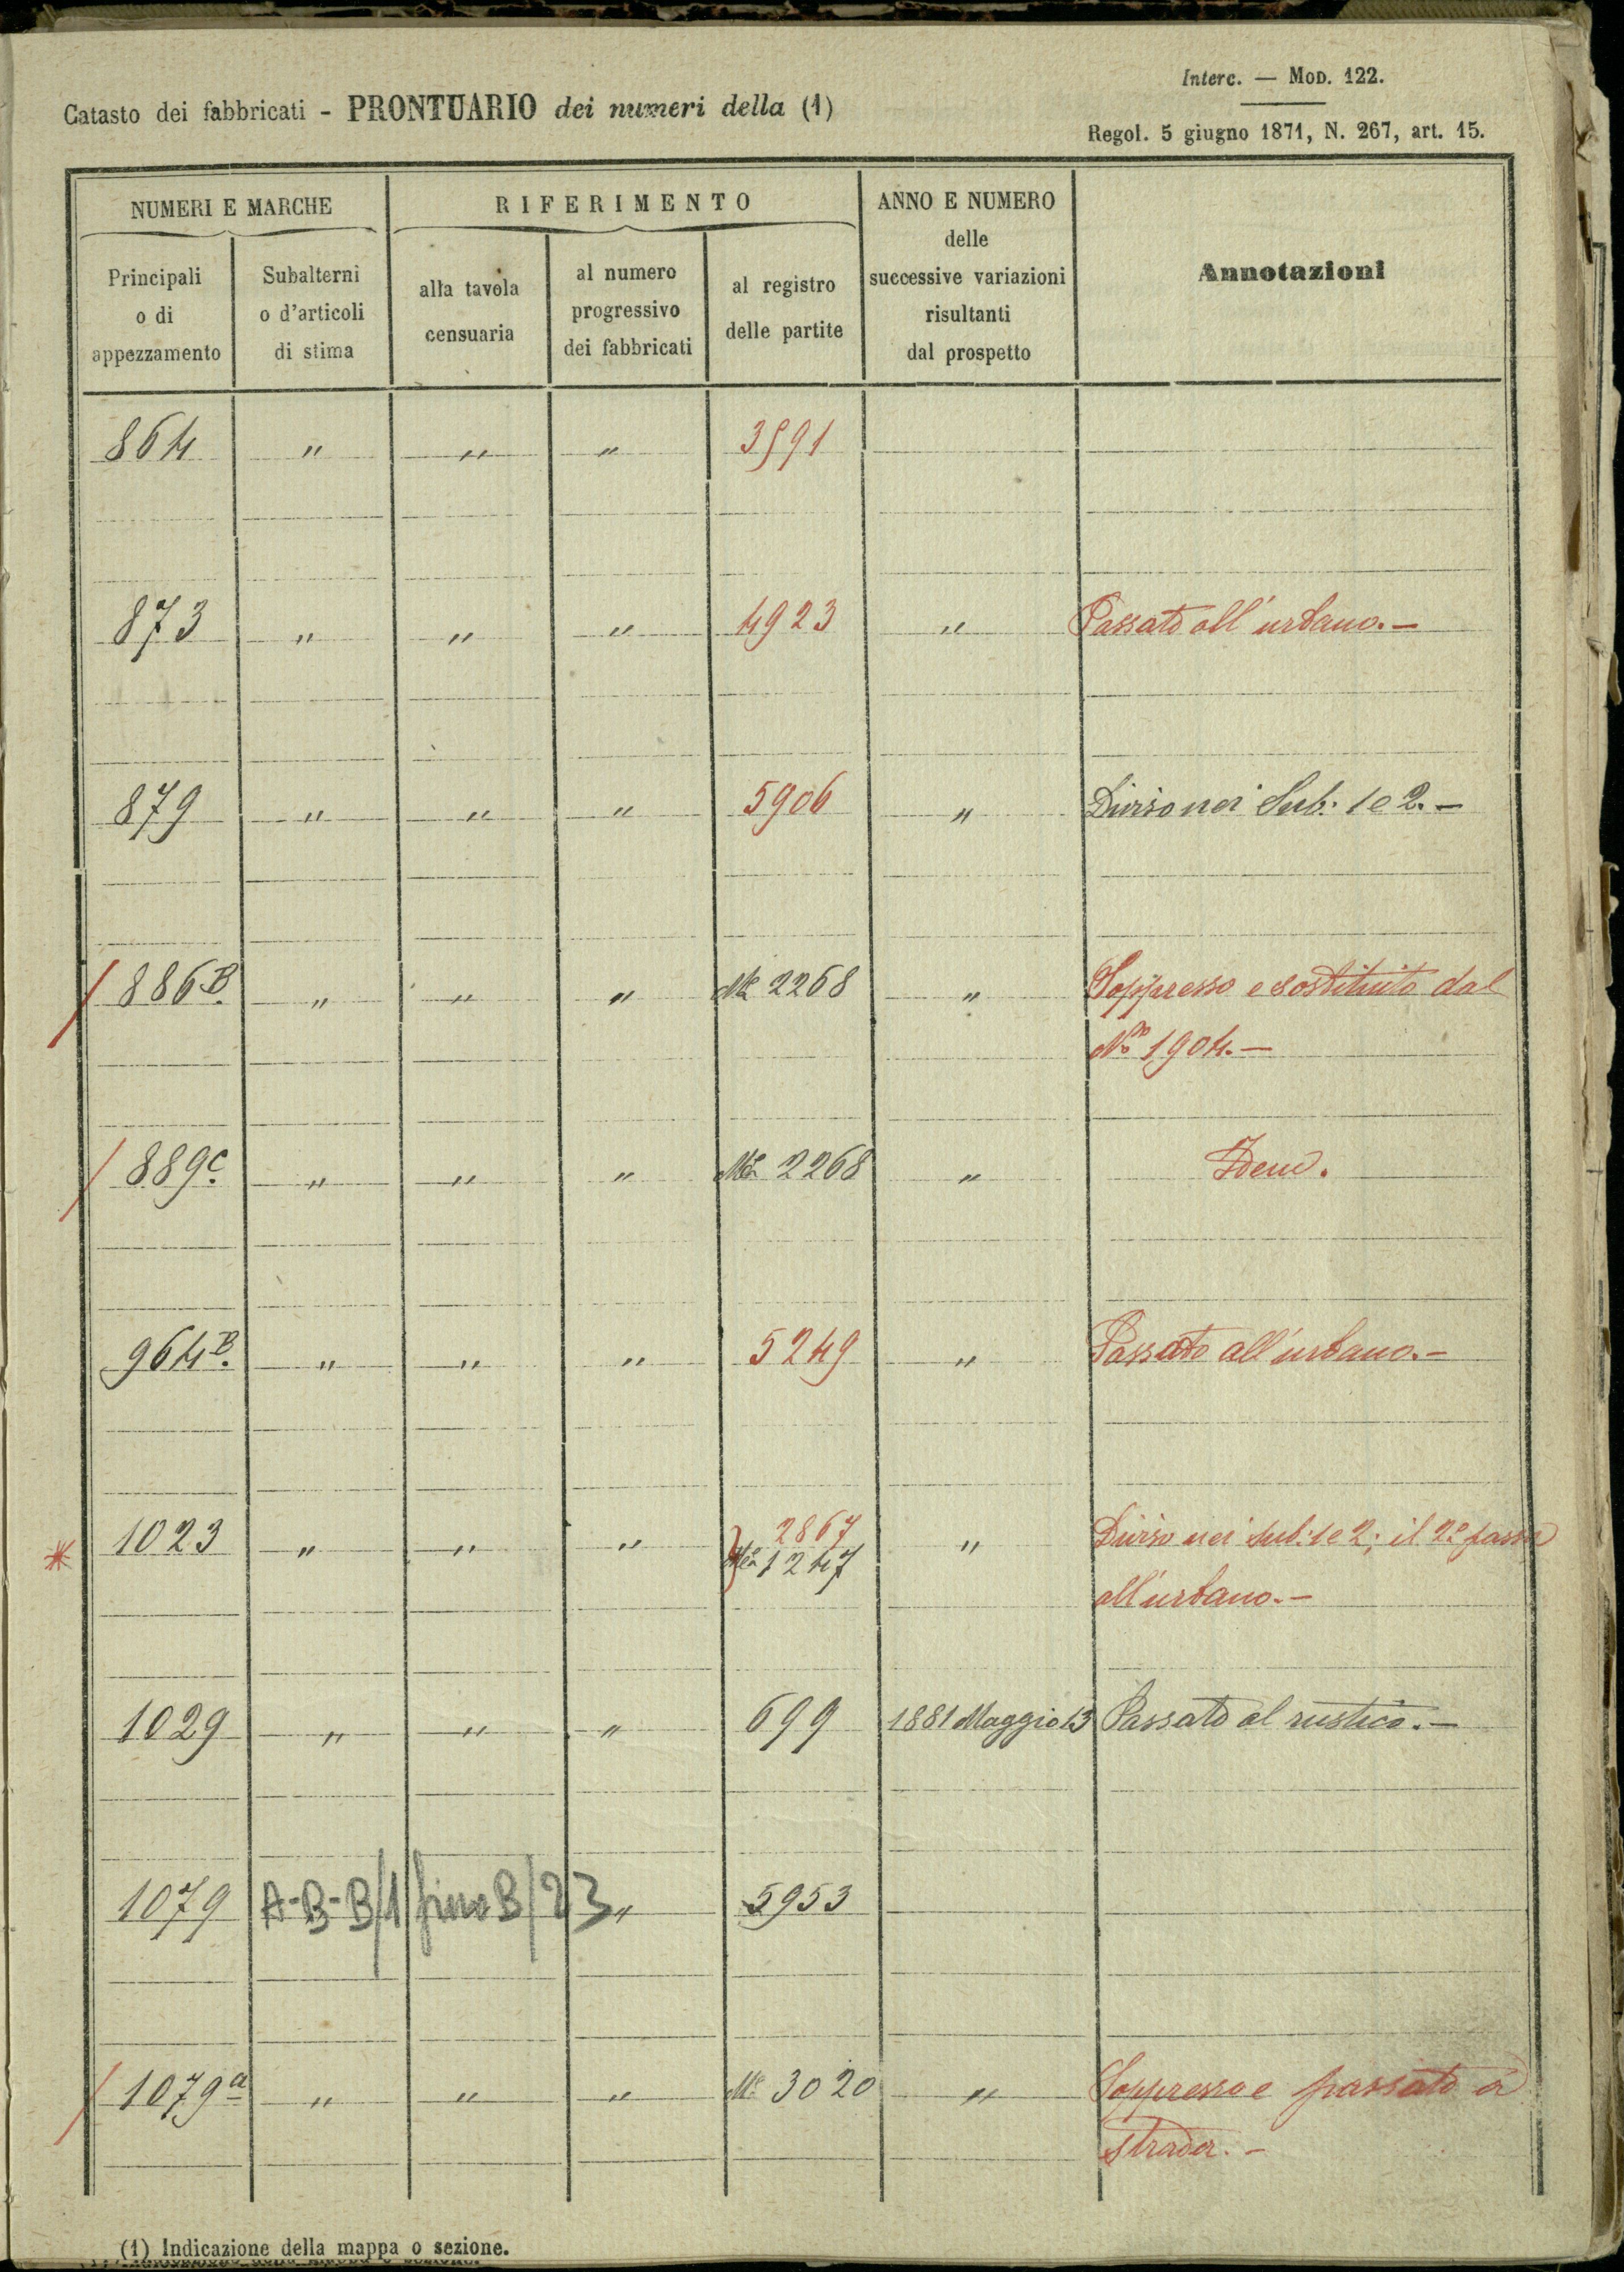 Interc. — MOD. 122.
Catasto dei fabbricati - PRONTUARIO dei numeri della (1)
Regol. 5 giugno 1871, N. 267, art. 15.
NUMERI E MARCHE
RIFERIMENTO
ANNO E NUMERO
delle
successive variazioni
risultanti
dal prospetto
Annotazioni
Principali
o di
appezzamento
Subalterni
o d'articoli
di stima
alla tavola
censuaria
al numero
progressivo
dei fabbricati
al registro
delle partite
864 " " " 3591
873 " " " 4923 " Passato all'urbano.—
879 " " " 5906 " Diviso nei Sub: 1 e 2.—
886B. " " " 2268 " Soppresso e sostituito dal
No 1904.—
889c. " " " 2268 " Idem.
964B. " " " 5249 " Passato all'urbano.—
1023 " " " 2867 " Diviso nei Sub: 1 e 2; il 2o passa
1247
all'urbano.—
1029 " " " 699 1881 Maggio 13 Passato al rustico.—
1079 A-B-B/1 fino B/23 " 5953
1079a " " " 3020 " Soppresso e passato a
strada.—
(1) Indicazione della mappa o sezione.